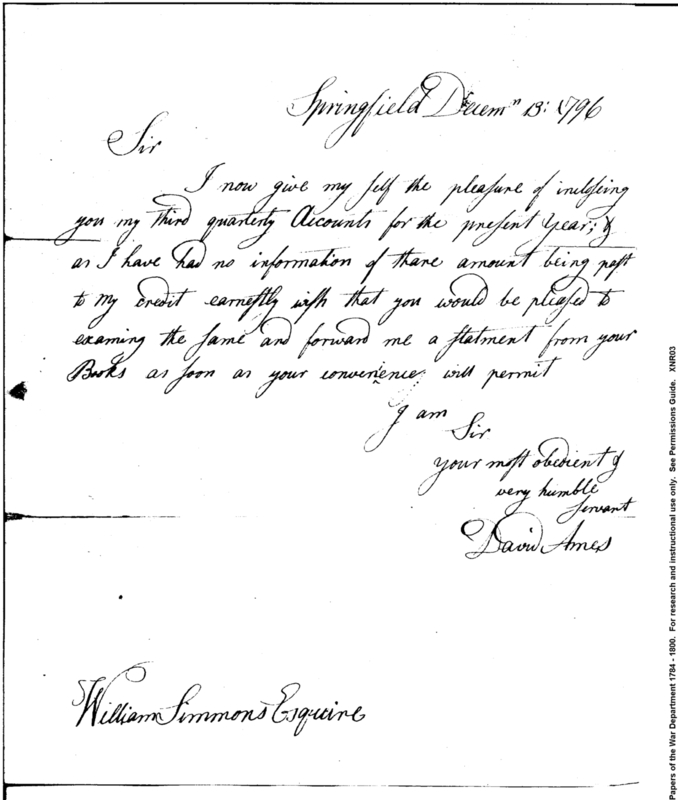 Springfield Decemr 13: 1796
Sir
I now give my self the pleasure of inclosing
you my third quarterly Accounts for the present Year; &
as I have had no information of thare amount being past
to my credit earnestly wish that you would be pleased to
examing the same and forward me a statment from your
Books as soon as your convenience will permit
I am
Sir
your most obedient &
very humble
servant
David Ames
William Simmons Esquire
Papers of the War Department 1784 - 1800. For research and instructional use only. See Permissions Guide. XNR03